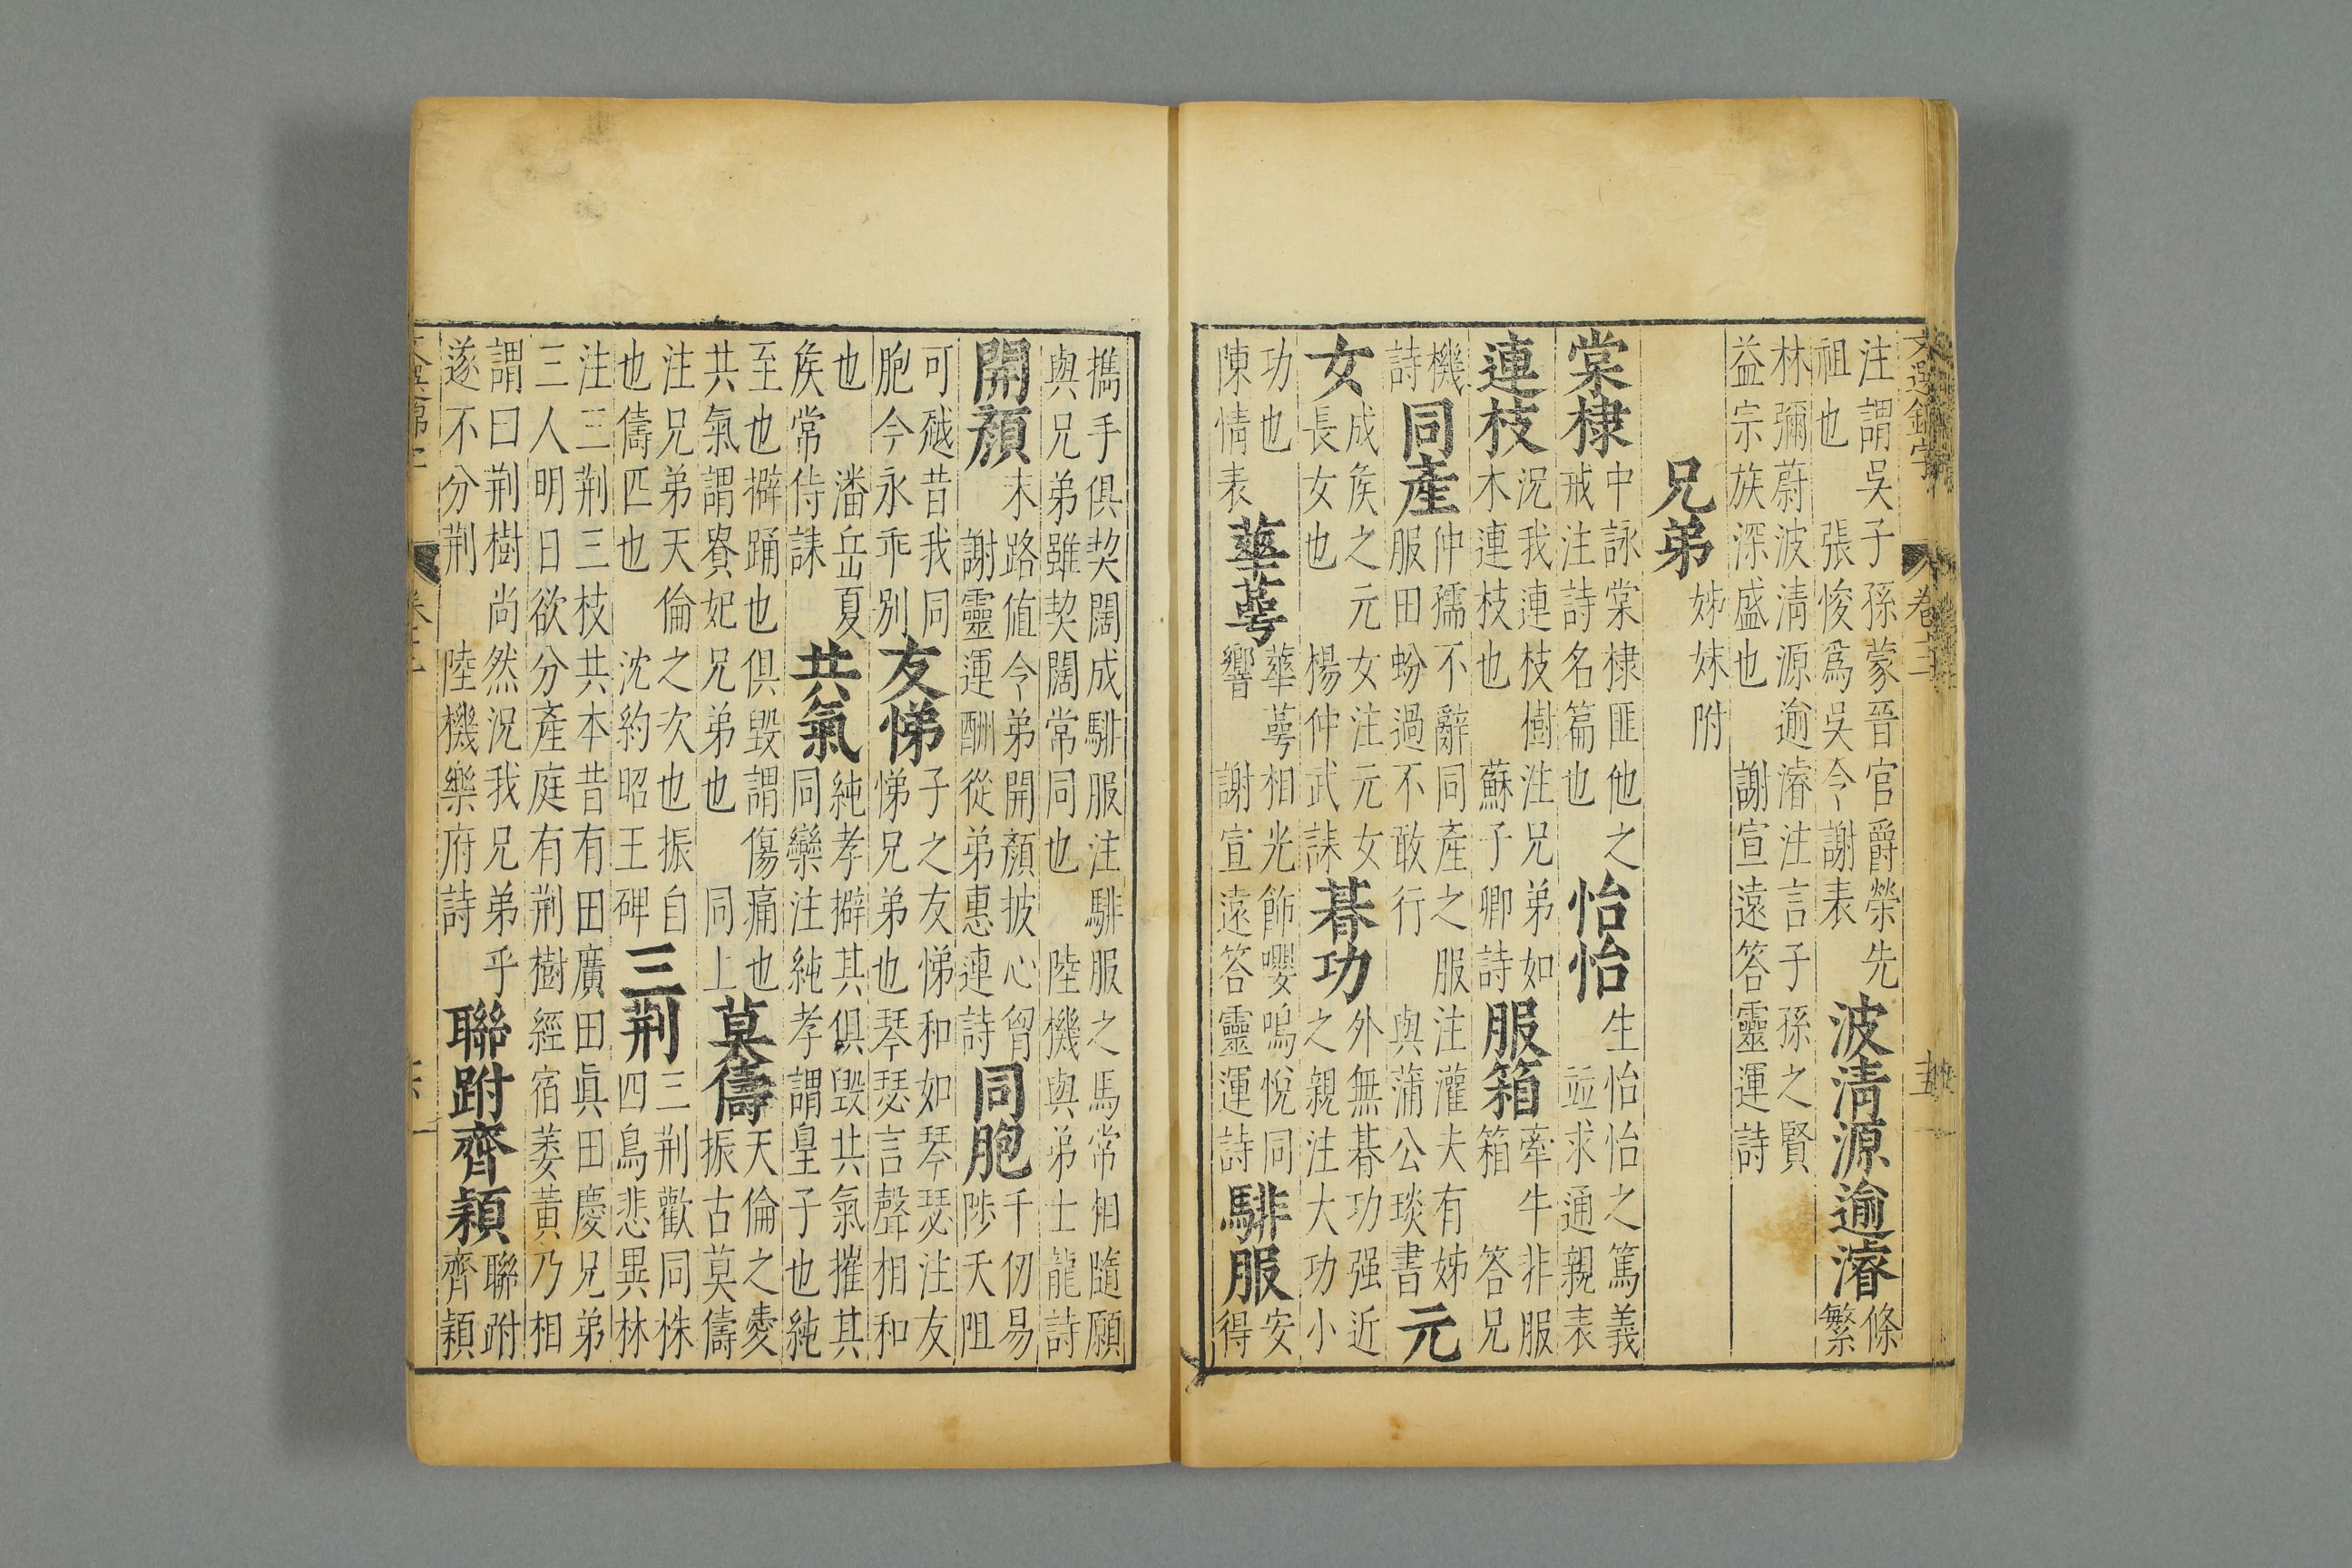 文選錦字 卷三
注謂吳子孫蒙晉官爵榮先祖也 張悛爲吳令謝表 波清源逾濬 條繁
林彌蔚波清源逾濬注言子孫之賢益宗族深盛也 謝宣遠答靈運詩
兄弟 姊妹附
棠棣 中詠棠棣匪他之戒注詩名篇也 怡怡 生怡怡之篤義 並求通親表
連枝 況我連枝樹注兄弟如木連枝也 蘇子卿詩 服箱 牽牛非服箱 答兄
機詩 同產 仲孺不辭同產之服注灌夫有姊服田蚡過不敢行 與蒲公琰書 元
女 成矦之元女注元女長女也 楊仲武誄 朞功 外無朞功强近之親注大功小
功也 陳情表 華萼 華萼相光飾嚶鳴悅同響 謝宣遠答靈運詩 騑服 安得
攜手俱契闊成騑服注騑服之馬常相隨願與兄弟雖契闊常同也 陸機與弟士龍詩
開顏 末路值令弟開顏披心胷 謝靈運酬從弟惠連詩 同胞 千仞易陟天阻
可越昔我同胞今永乖別 友悌 子之友悌和如琴瑟注友悌兄弟也琴瑟言聲相和
也 潘岳夏矦常侍誄 共氣 純孝擗其俱毀共氣摧其同欒注純孝謂皇子也純
至也擗踊也俱毀謂傷痛也共氣謂賚妃兄弟也 同上 莫儔 天倫之愛振古莫儔
注兄弟天倫之次也振自也儔匹也 沈約昭王碑 三荆 三荆歡同株四鳥悲異林
注三荆三枝共本昔有田廣田眞田慶兄弟三人明日欲分產庭有荆樹經宿萎黃乃相
謂曰荆樹尚然況我兄弟乎遂不分荆 陸機樂府詩 聯跗齊穎 聯跗齊穎